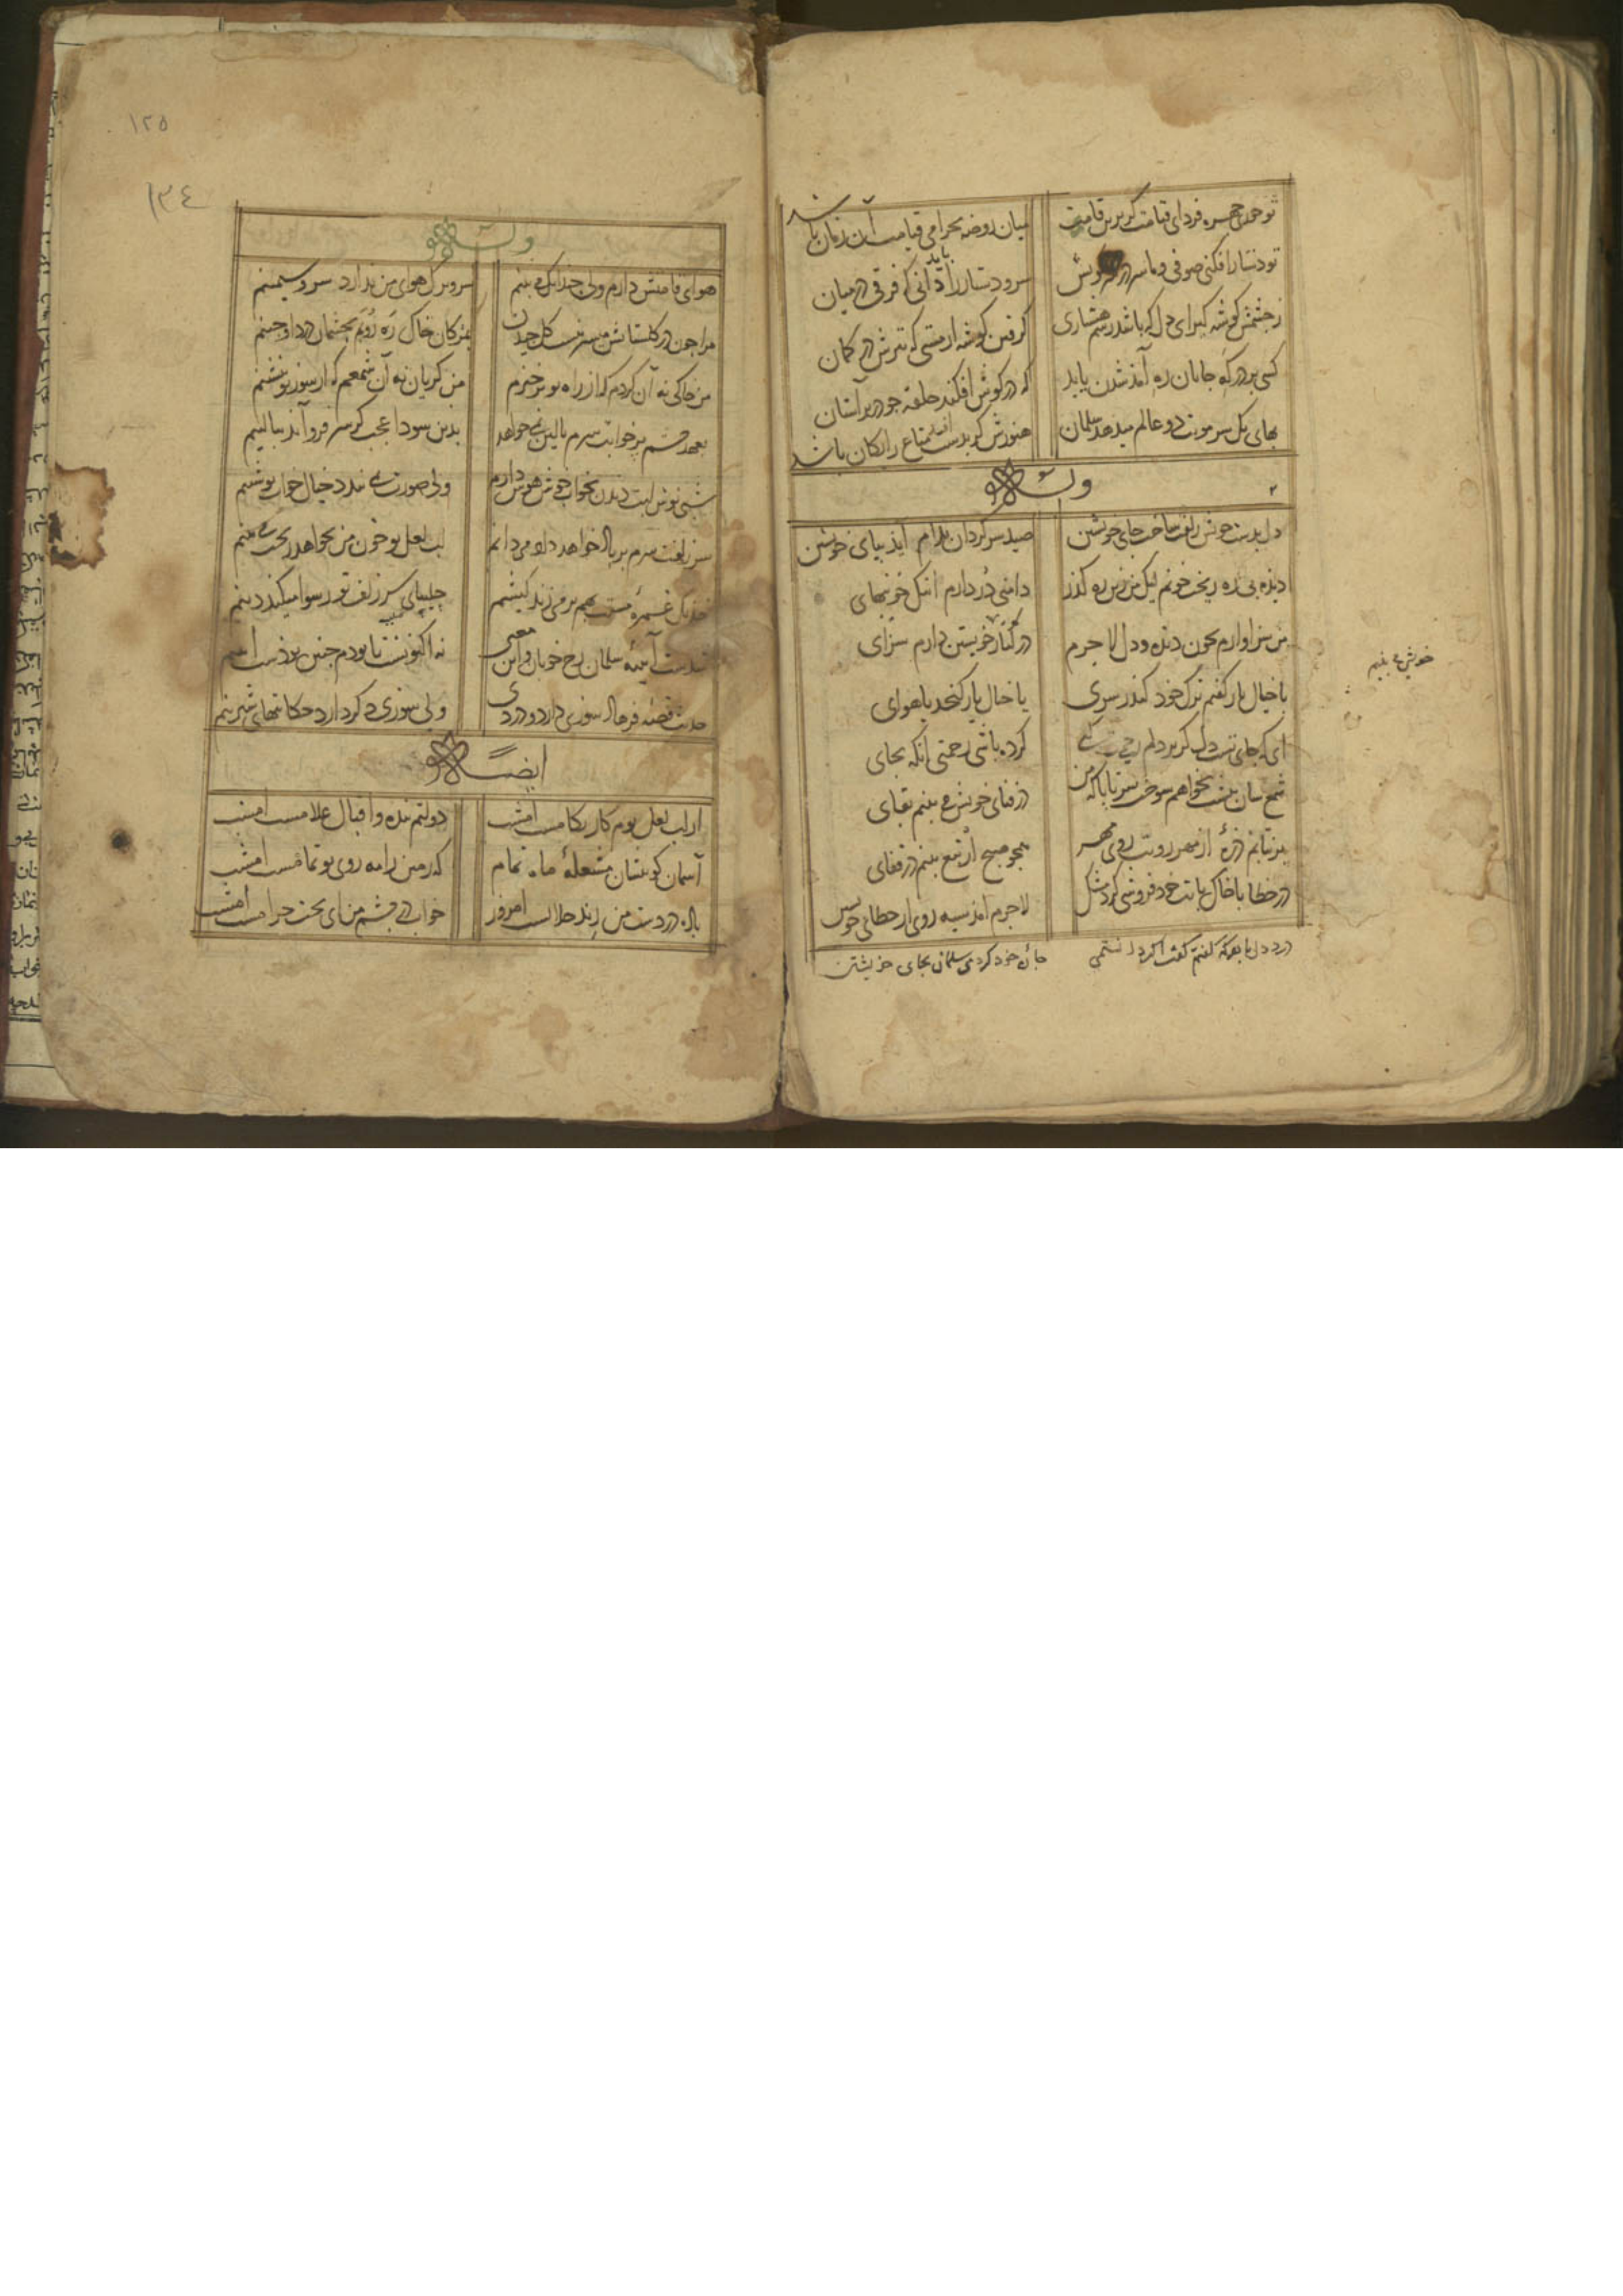 تو خود چهره فردای قیامت گر برین قامت
میان روضه بخرامی قیامت آن زمان باشد
تو دستار افکنی صوفی و ما سر در
سر و دستار را باید دانی که فرقی در میان
ز چشمش گوشه گیر ای دل که باشد رسم هشیاری
گرفتن گوشه از مستی که تیرش در کمان
کسی بر درگه جانان ره آمد شدن یابد
که در گوش افکند حلقه چو در بر آستان
بهای یک سر مویت دو عالم میدهد سلمان
هنوزش گر بدست افتد متاع رایکان باشد
وله
دل بدست خویش زلفت ساخت جای خویشتن
صید سرگردان بدام آید بپای خویشتن
دیده بی ره ریخت خونم لیک من زین ره گذر
دامنی در دارم اشک خونبهای
من سزاوارم بخون دیده و دل لاجرم
در کنار خویشتن دارم سزای
با خیال یار گفتم ترک خود گیرد سری
یا خیال یار گنجد یا هوای
ای که جای تست دل گر بر دلم
کرده باشی رحمتی آنکه بجای
شمع سان پیشت بخواهم سوخت سر تا پا که من
در فنای خویش می بینم بقای
بر نتابم ذرهٔ از مهر رویت روی مهر
همچو صبح ار تیغ بینم در قفای
در خطا با خاک پایت خود فروشی کرد مشک
لاجرم آمد سیه روی از خطای خویش
درد دل با هر که گفتم گفت اگر دانستمی
جان خود کردمی سلمان بجای خویشتن
خویش می بینم
۱۲۵
۱۳۴
وله
هوای قامتش دارم ولی چندانک می بینم
سر و برگ هوای من ندارد سرو سیمینم
مرا چون در گلستانش میسر نیست گل چیدن
بمژگان خاک ره روبم بچشمان درد او چینم
من خاکی نه آن گردم که از راه تو برخیزم
من گریان نه آن شمعم که از سوز تو بنشینم
بعهد چشم پر خوابت سرم بالین نمی خواهد
بدین سودا عجب گر سر فرو آید ببالینم
شبی نوش لبت دیدن بخواب خوش هوس دارم
ولی صورت نمی بندد خیال خواب نوشینم
سر زلفت سرم بر باد خواهد داد و می دانم
لب لعل تو خون من بخواهد ریخت می بینم
خدنگ غمزهٔ مستت بهم بر می زند کیشم
چلیپای سر زلف تو رسوا میکند دینم
شدست آیینهٔ سلمان رخ خوبان و این معنی
نه اکنونست تا بودم چنین بودست آیینم
حدیث قصه فرهاد سوزی دارد و دردی
ولی سوزی دگر دارد حکایتهای شیرینم
ایضا
از لب لعل توام کار بکامست امشب
دولتم بنده و اقبال غلامست امشب
آسمان گو منشان مشعلهٔ ماه تمام
که زمین را مه روی تو تمامست امشب
باده در دست من رند حلالست امروز
خواب در چشم من ای بخت حرامست امشب